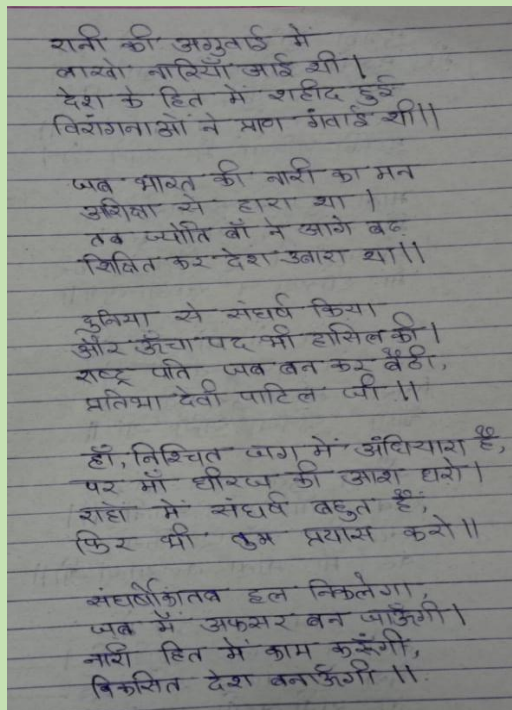 रानी की अगुवाई में
लाखो नारियाँ आई थी।
देश के हित में शहीद हुई
विरांगनाओं ने प्राण गंवाई थी।।
जब भारत की नारी का मन
अशिक्षा से हारा था।
तब ज्योति बाँ ने आगे बढ़
शिक्षित कर देश उबारा था।।
दुनिया से संघर्ष किया
और ऊँचा पद भी हासिल की।
राष्ट्र पति जब बन कर बैठी,
प्रतिभा देवी पाटिल जी।।
हाँ, निश्चित जग में अंधियारा है,
पर माँ धीरज की आश धरो।
राहो में संघर्ष बहुत है,
फिर भी तुम प्रयास करो।।
संघर्षोकातब हल निकलेगा,
जब मैं अफसर बन जाऊँगी।
नारी हित में काम करूँगी,
विकसित देश बनाऊँगी।।